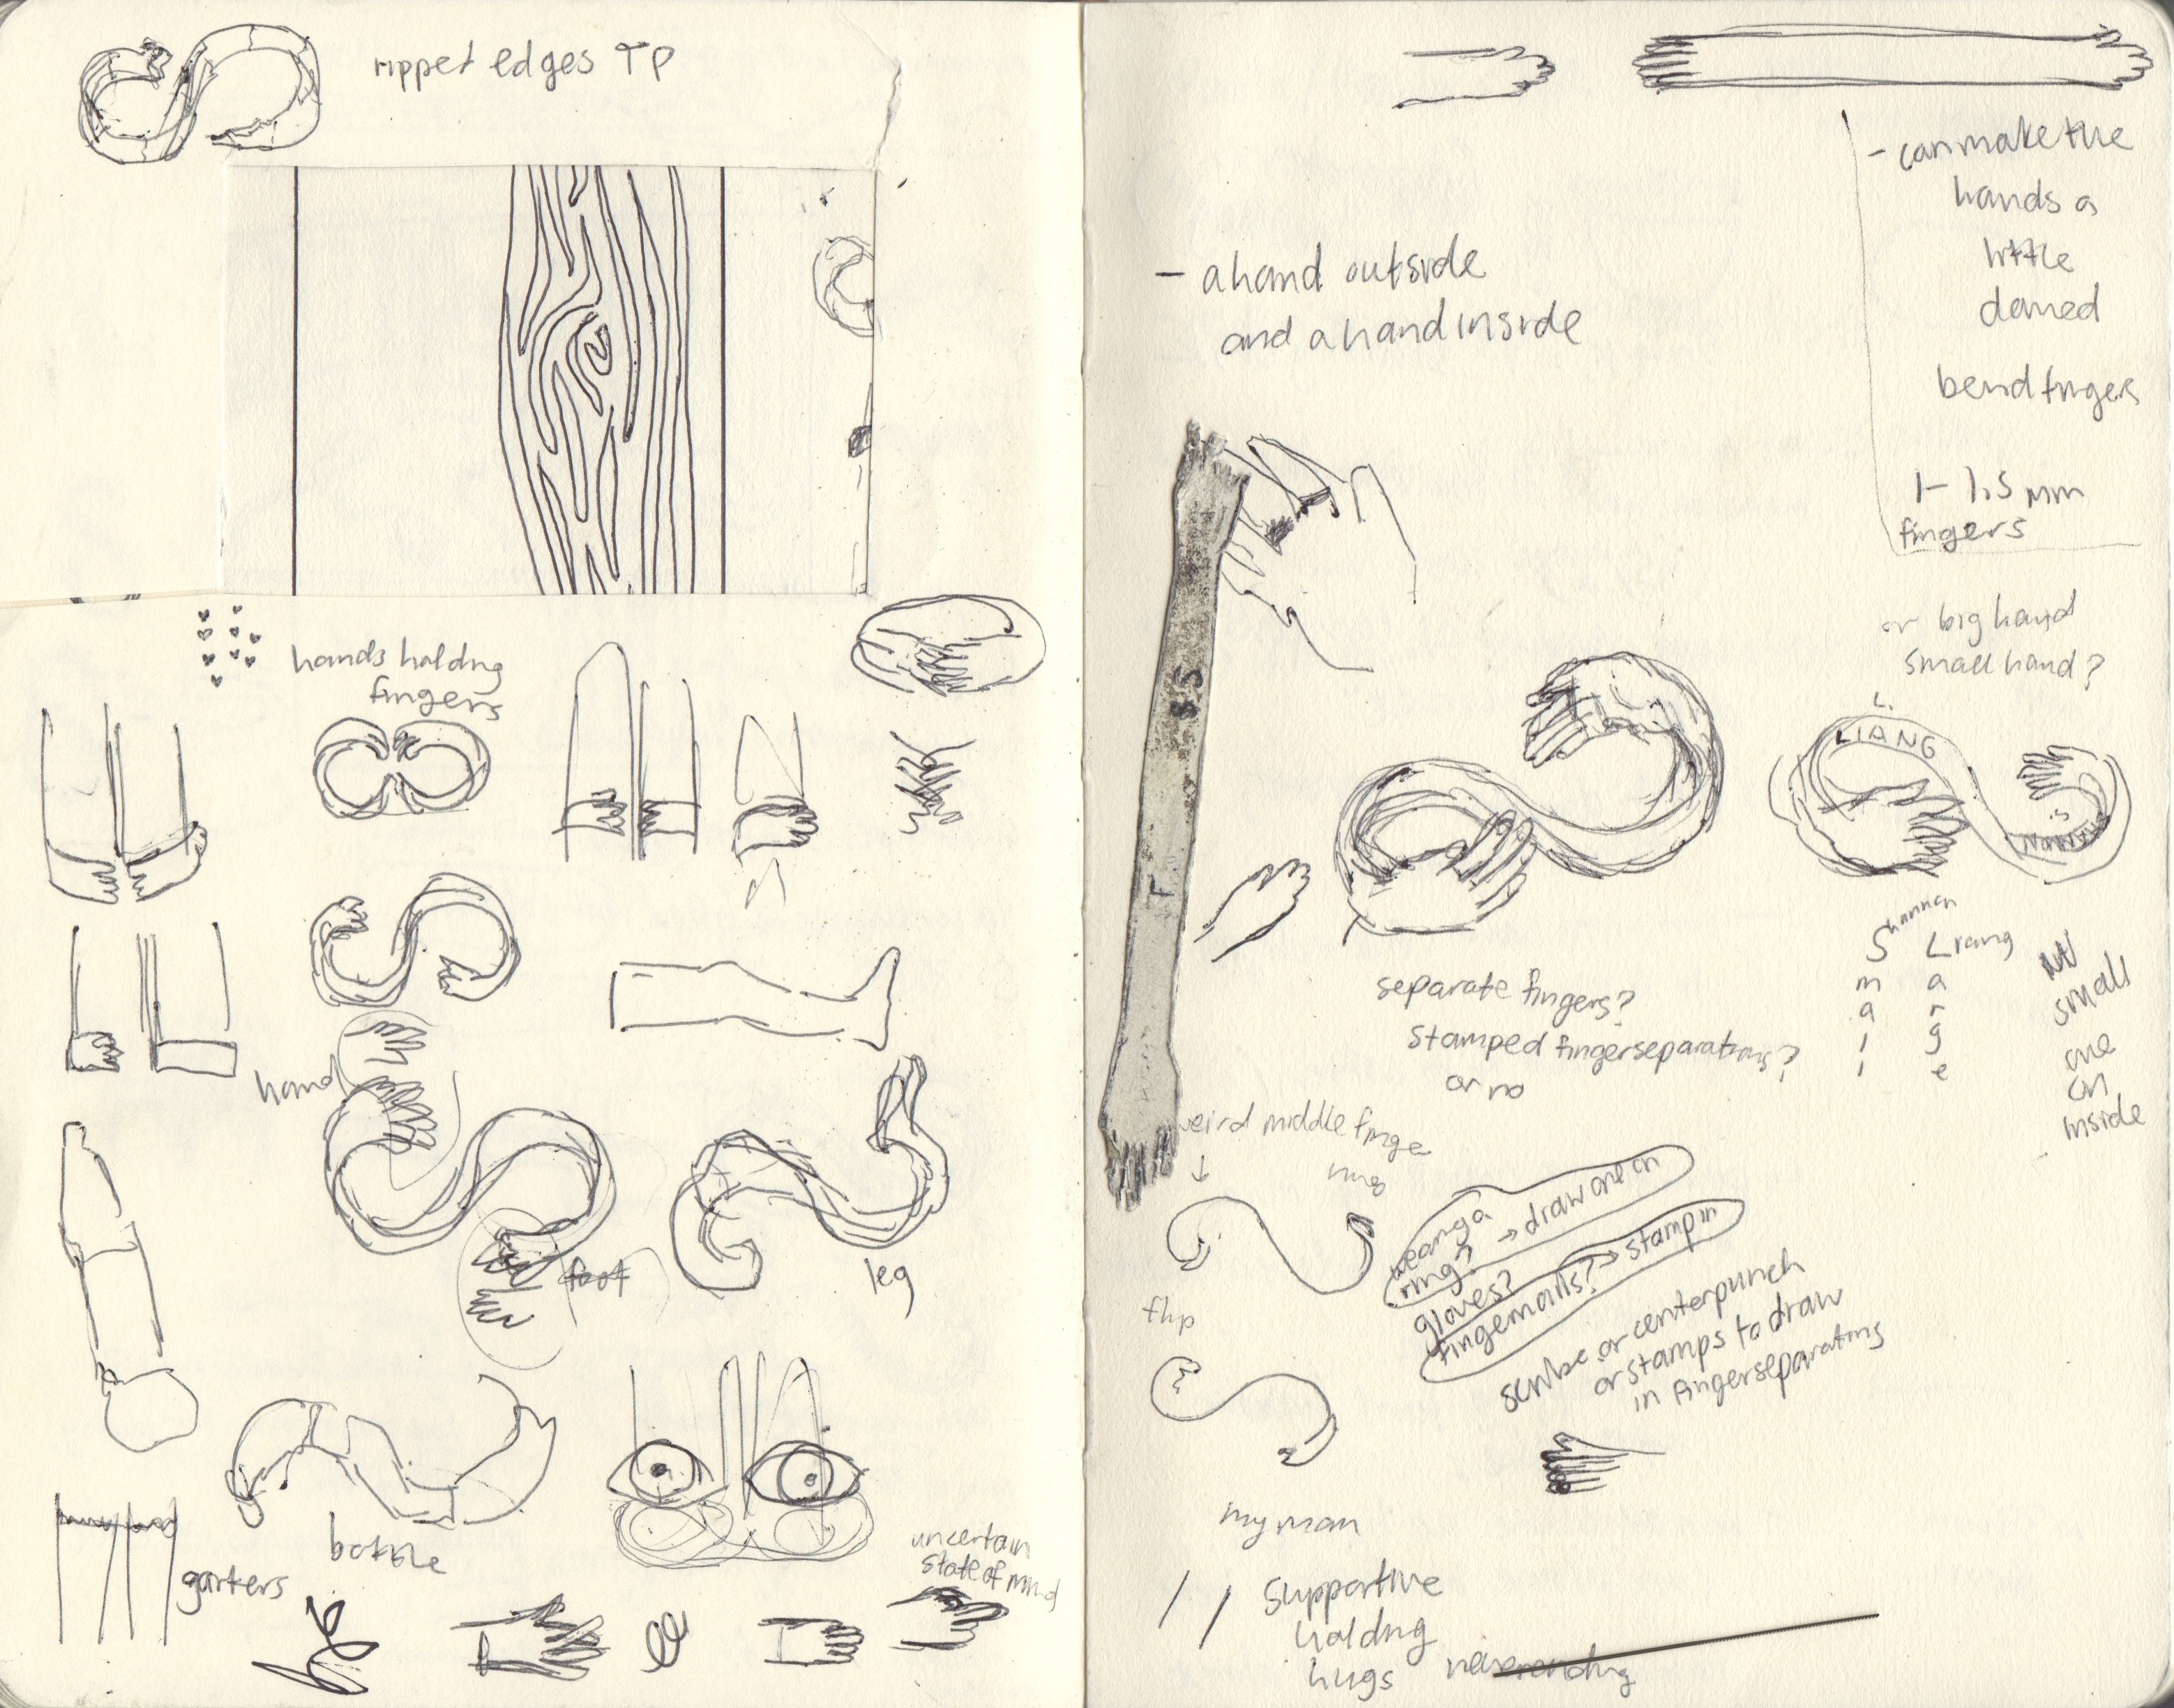 ripped edges TP
hands holding
fingers
hand
foot
leg
bottle
garters
uncertain
state of mind
- can make the
hands a
little
domed
bend fingers
1-1.5 mm
fingers
- a hand outside
and a hand inside
or big hand
small hand?
L.
LIANG
SS
T
Shannon Liang
S m a l l
L a r g e
small
one
on
inside
separate fingers?
stamped finger separations?
or no
weird middle finger
ring
wearing a
ring? → draw one on
gloves?
fingernails? → stamp in
flip
scribe or centerpunch
or stamps to draw
in finger separations
my man
// supportive
holding
hugs neverending